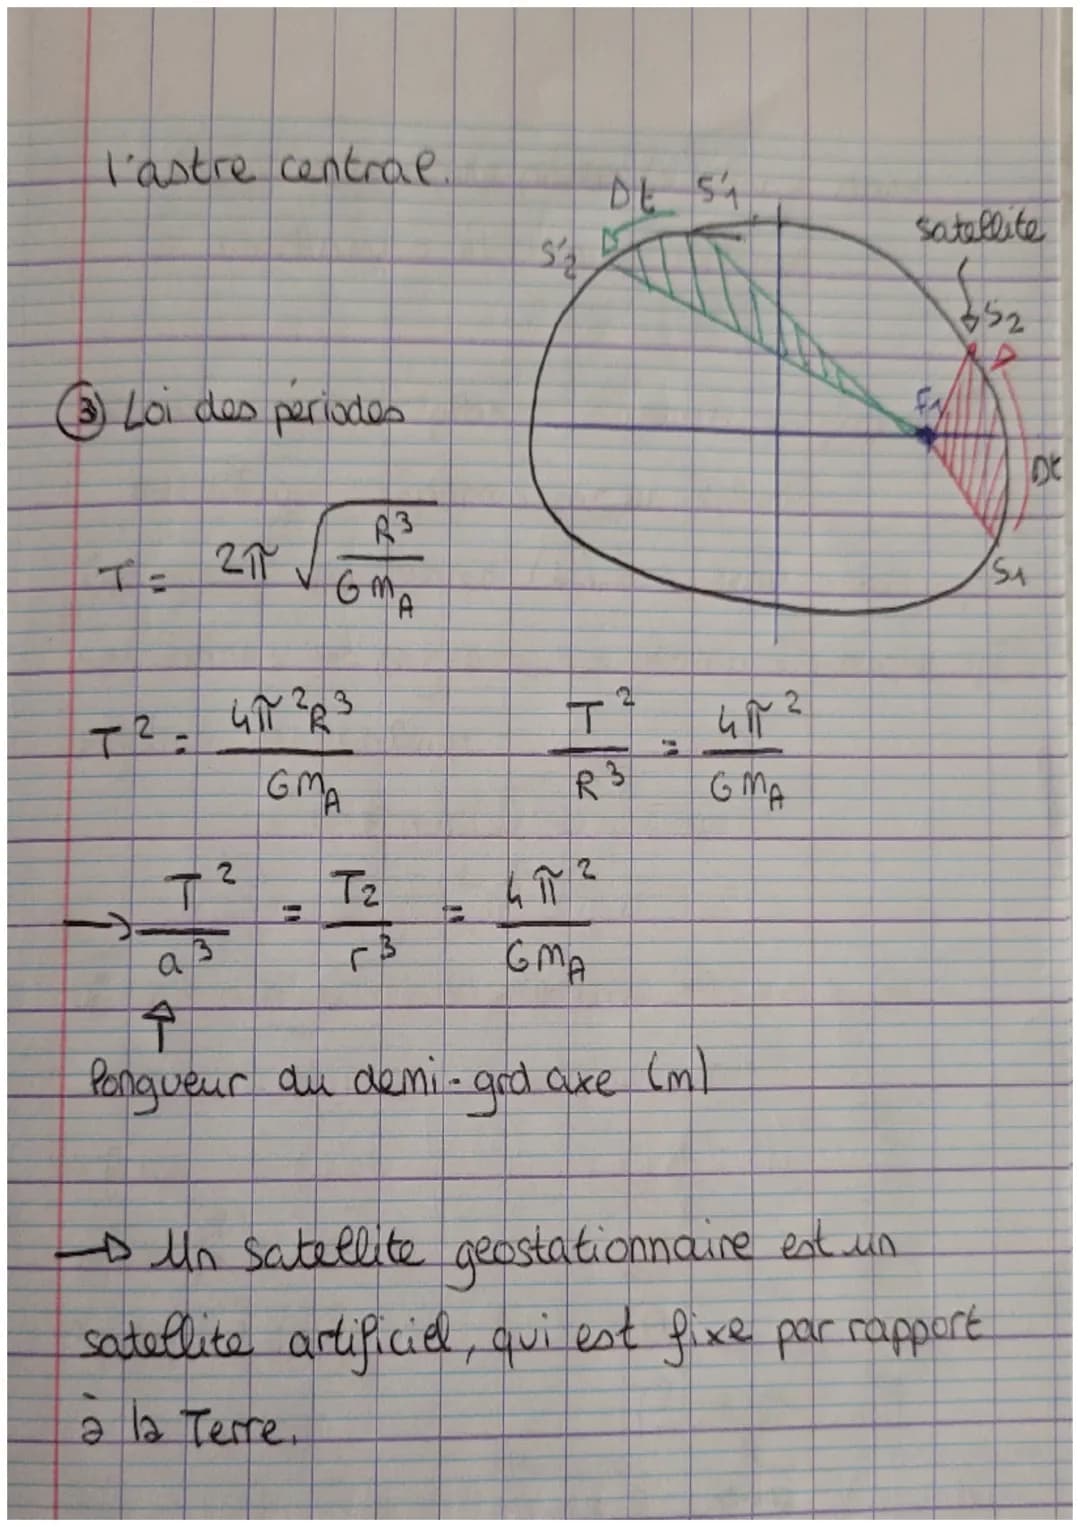 l'astre central.
Dt S'1
S'2
satellite
S2
③ Loi des périodes
F1
Dt
S1
T = 2π √(R³ / G mA)
T² = 4π²R³ / GmA
T² / R³ = 4π² / G mA
→ T² / a³ = T2 / r³ = 4π² / GmA
↑
longueur du demi-grd axe (m)
→ Un satellite geostationnaire est un
satellite artificiel, qui est fixe par rapport
à la Terre.